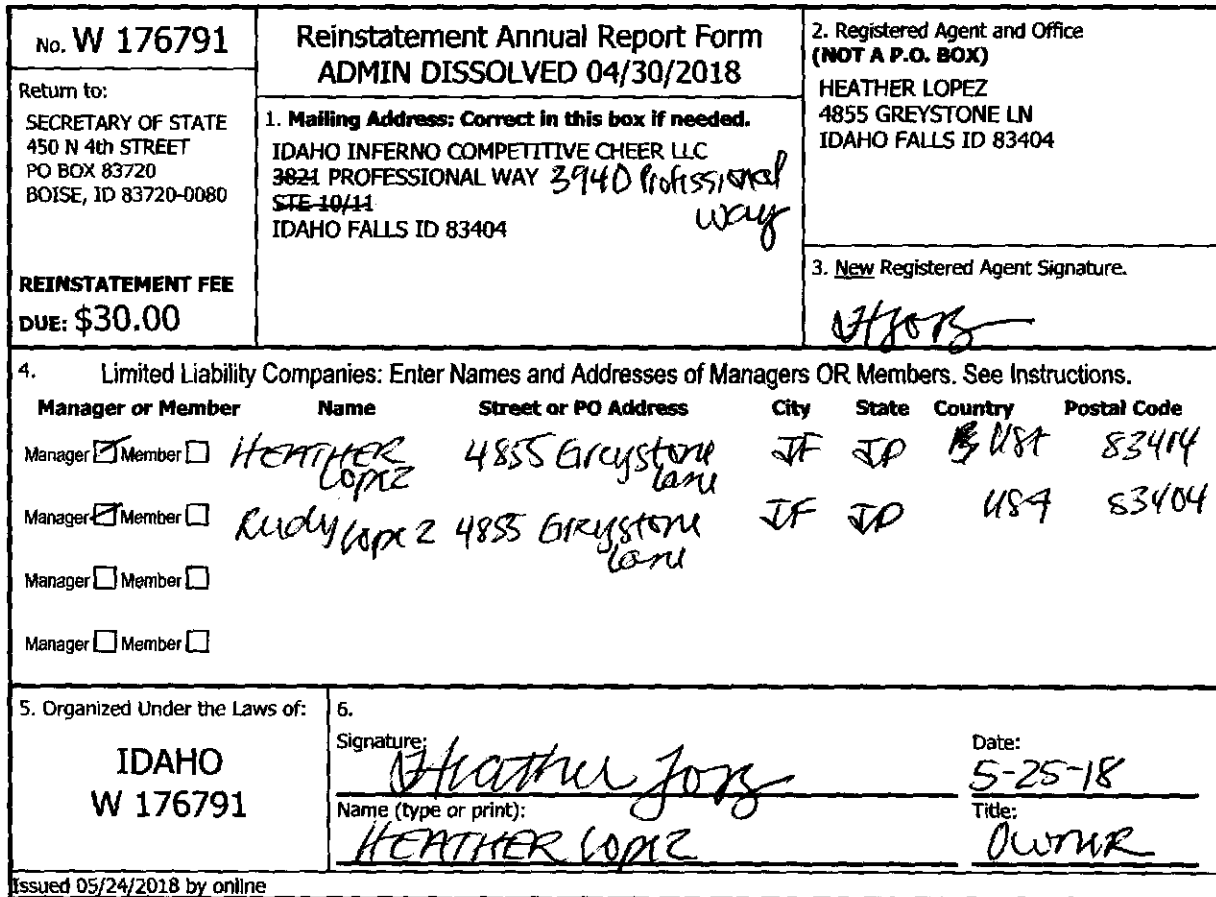 No. W 176791
Return to:
SECRETARY OF STATE
450 N 4th STREET
PO BOX 83720
BOISE, ID 83720-0080
REINSTATEMENT FEE
DUE: $30.00
Reinstatement Annual Report Form
ADMIN DISSOLVED 04/30/2018
1. Mailing Address: Correct in this box if needed.
IDAHO INFERNO COMPETITIVE CHEER LLC
3821 PROFESSIONAL WAY 3940 Professional
STE 10/11 way
IDAHO FALLS ID 83404
2. Registered Agent and Office
(NOT A P.O. BOX)
HEATHER LOPEZ
4855 GREYSTONE LN
IDAHO FALLS ID 83404
3. New Registered Agent Signature.
4. Limited Liability Companies: Enter Names and Addresses of Managers OR Members. See Instructions.
Manager or Member Name Street or PO Address City State Country Postal Code
Manager Member HEATHER 4855 Greystone IF ID USA 83414
Lopez Lane
Manager Member Rudy Lopez 4855 Greystone IF ID USA 83404
Lane
Manager Member
Manager Member
5. Organized Under the Laws of:
IDAHO
W 176791
6.
Signature: Heather Lopez
Date:
5-25-18
Name (type or print):
HEATHER Lopez
Title:
Owner
Issued 05/24/2018 by online